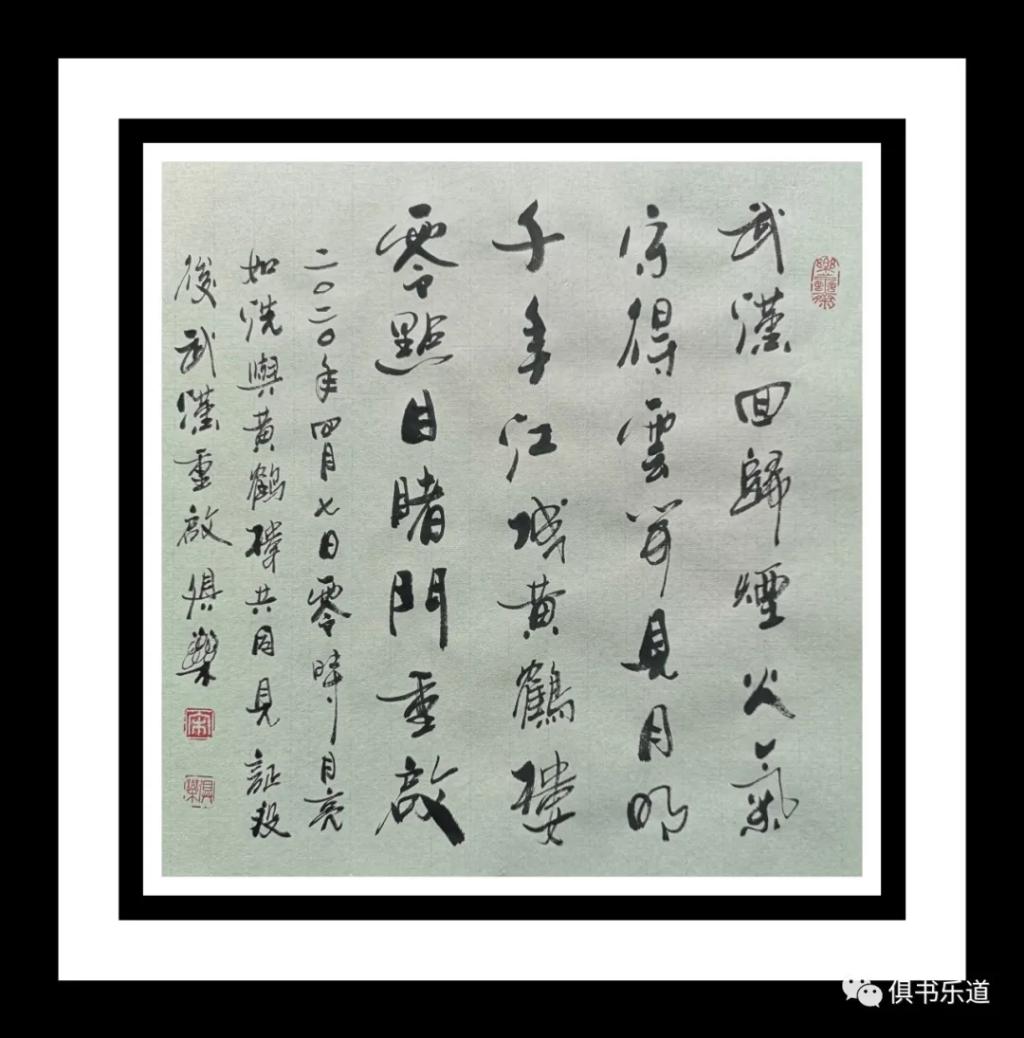 武漢回歸煙火氣
守得雲開見月明
千年江城黄鶴樓
零點目睹門重啟
二〇二〇年四月七日零時月亮
如洗與黄鶴樓共同見証疫
後武漢重啟俱樂
俱书乐道